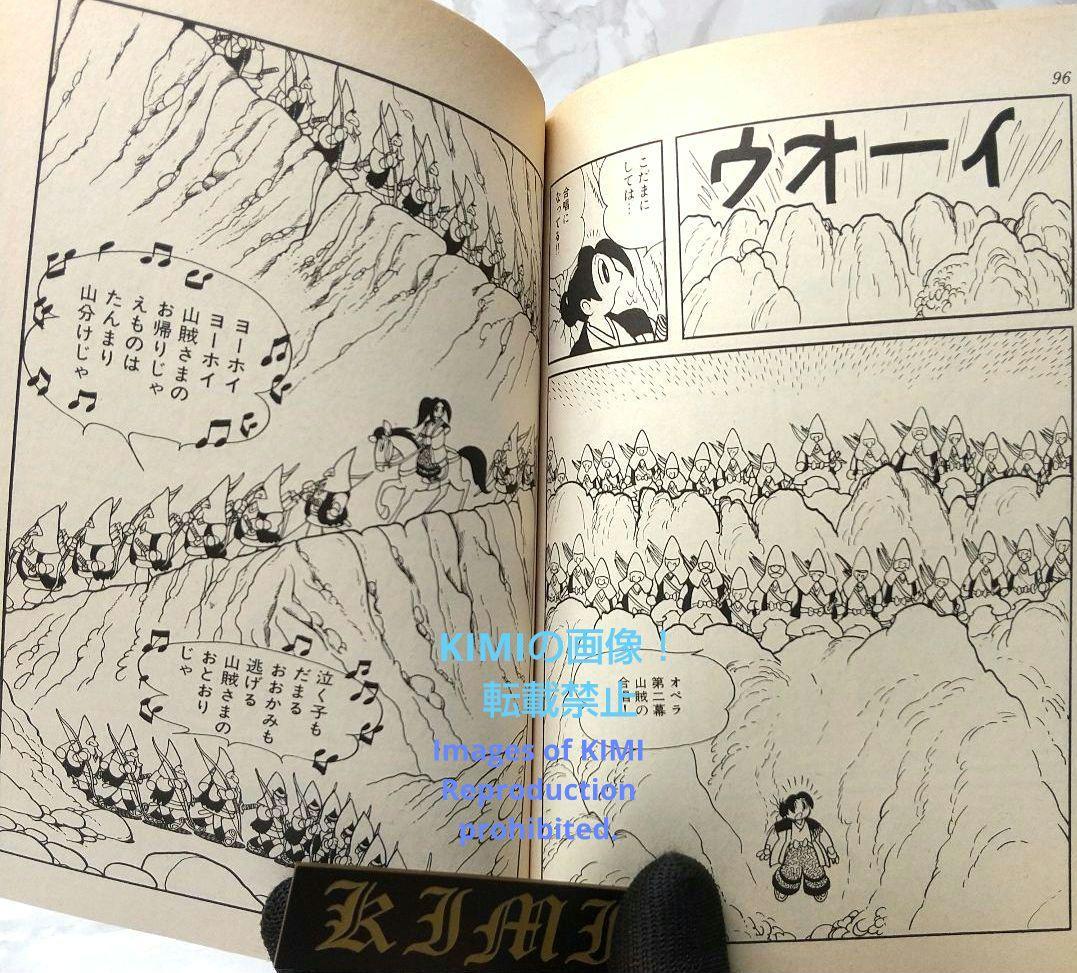 96
ウオーイ
こだまに
しては…
合唱に
なってる!!
オペラ
第二幕
山賊の
ヨーホイ
ヨーホイ
山賊さまの
お帰りじゃ
えものは
たんまり
山分けじゃ
泣く子も
だまる
おおかみも
逃げる
山賊さまの
おとおり
じゃ
KIMIの画像！
転載禁止
Images of KIMI
Reproduction
prohibited.
KIMI